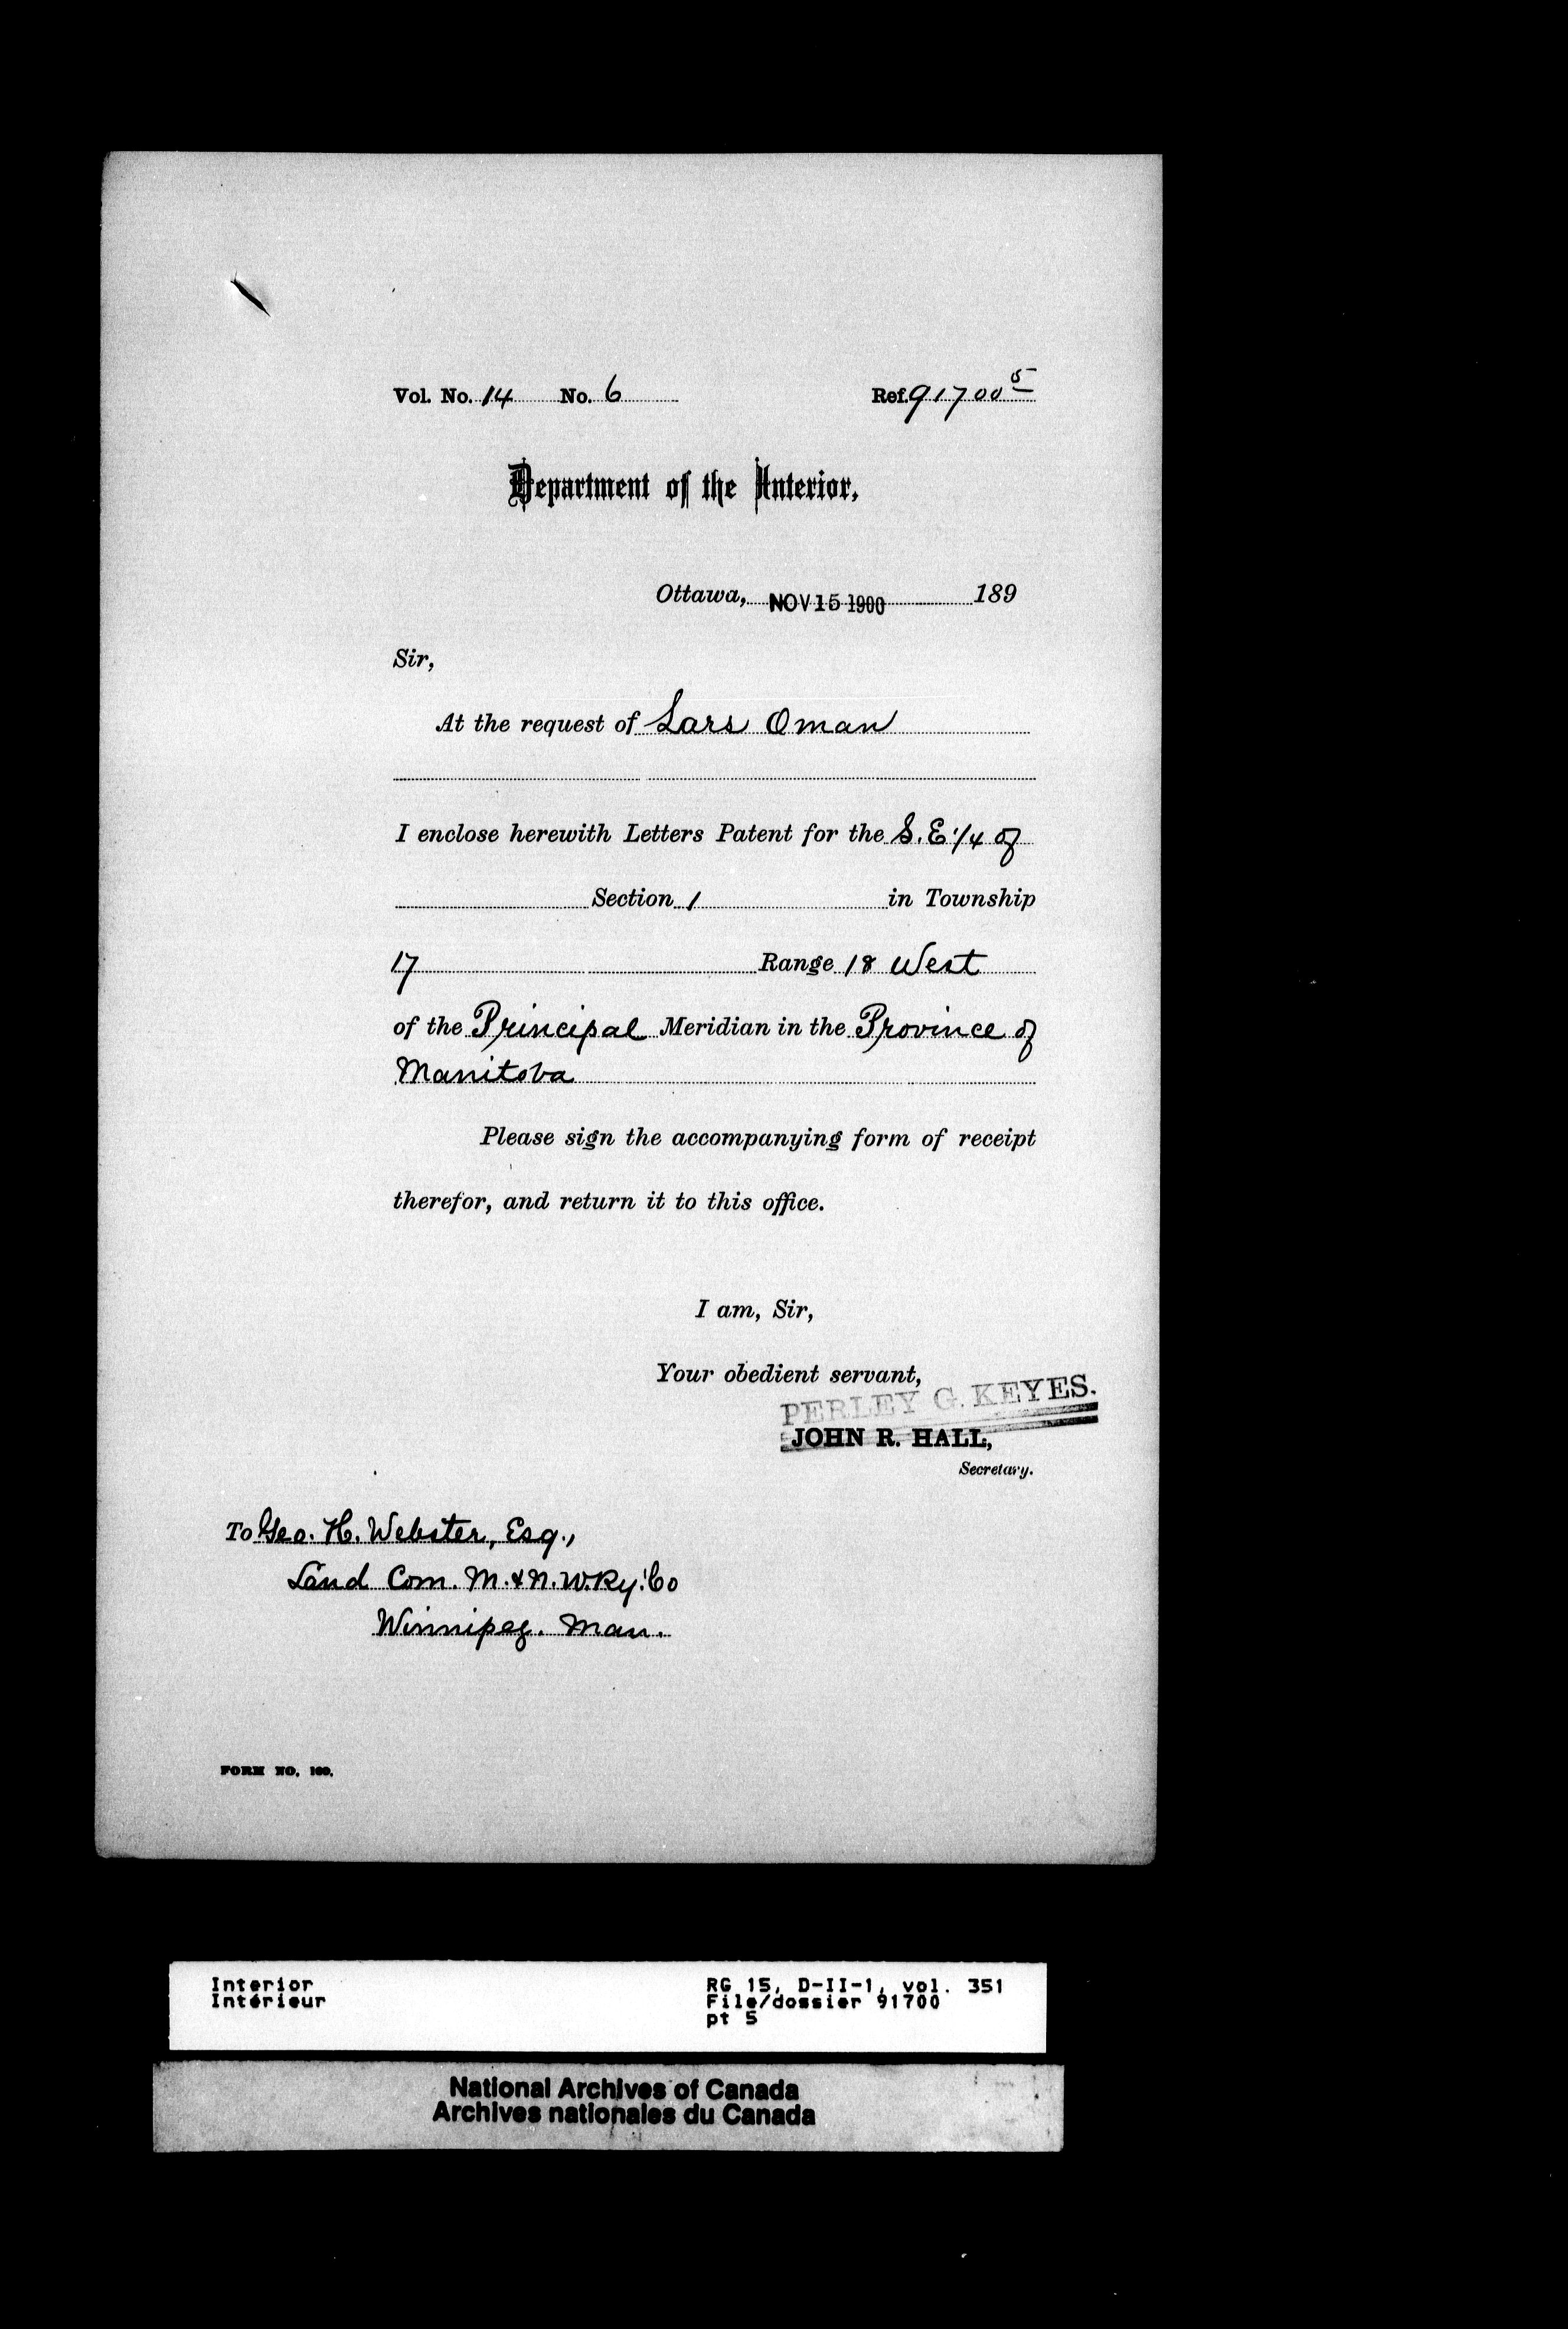 Vol. No. 14 No. 6 Ref. 91700 5
Department of the Interior,
Ottawa, NOV 15 1900 189
Sir,
At the request of Lars Oman
I enclose herewith Letters Patent for the S.E. 1/4 of
Section 1 in Township
17 Range 18 West
of the Principal Meridian in the Province of
Manitoba
Please sign the accompanying form of receipt
therefor, and return it to this office.
I am, Sir,
Your obedient servant,
PERLEY G. KEYES.
JOHN R. HALL,
Secretary.
To Geo. H. Webster, Esq.,
Land Com. M. & N. W. Ry. Co
Winnipeg. Man.
FORM NO. 109.
Interior RG 15, D-II-1, vol. 351
Intérieur File/dossier 91700
pt 5
National Archives of Canada
Archives nationales du Canada